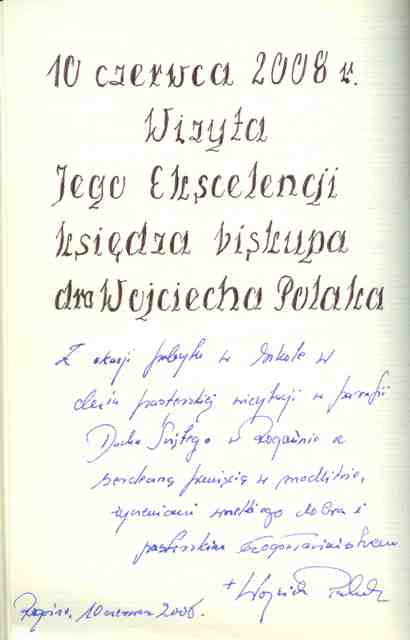 10 czerwca 2008 r.
Wizyta
Jego Ekscelencji
księdza biskupa
dra Wojciecha Polaka
Z okazji pobytu w Szkole w
dniu pasterskiej wizytacji w parafii
Ducha Świętego w Rogoźnie z
serdeczną pamięcią w modlitwie,
życzeniami wielkiego dobra i
pasterskim błogosławieństwem
+ Wojciech Polak
10 czerwca 2008.